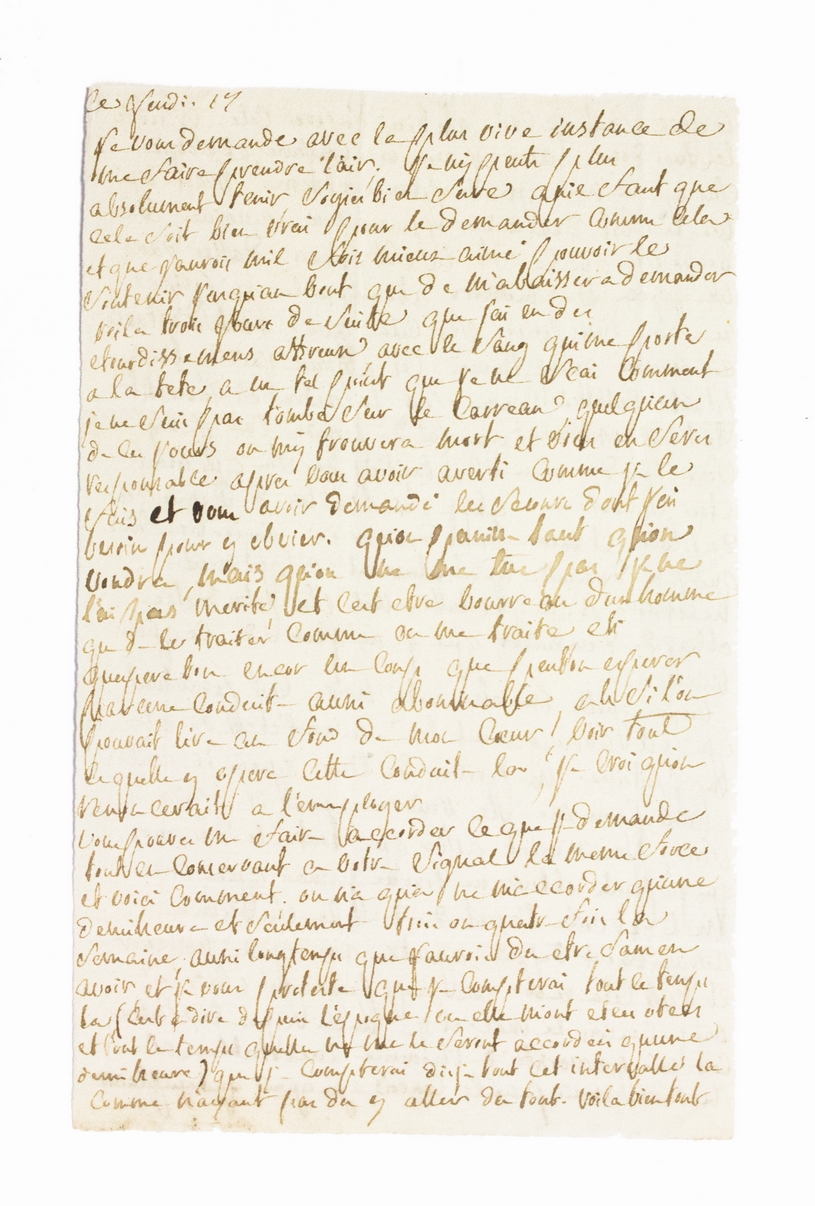 ce jeudi 17
je vous demande avec la plus vive instance de
me faire prendre l'air. je ny peut plus
absolument tenir Soyiés bien Sure quie faut que
cela Soit bien vrai pour le demander comme cela
et que j'aurois mil fois mieux aimé pouvoir le
Soutenir jusquau bout que de m'abaisser a demander
voila trois jours de Suitte que j'ai eu des
etourdissemens affreux avec le Sang qui me porte
a la tete a un tel point que je ne Scai comment
je ne Suis pas tombé Sur le carreau quelquun
de ces jours on my trouvera mort et vous en Serés
responsable apres vous avoir averti comme je le
fais et vous avoir demandé les Secours dont j'ai
besoin pour y obvier. quion punisse tant quion
voudra, mais quion ne me tue pas je ne
l'ai pas merité et cest etre bourreau d'un homme
que de les traiter comme on me traite et
quespere ton encor un coup que peut on esperer
par une conduite aussi abominable ah Si l'on
pouvait lire au fond de mon cœur! voir tout
ce quelle y opere cette conduite la, je croi quion
renoncerait a l'employer
vous pouvez me faire accorder ce que je demande
tout en conservant a votre Signal la meme force
et voici comment. on na quia ne maccorder quiune
demiheure et Seulement trois ou quatre fois la
Semaine, aussi longtemps que j'aurois du etre Sans en
avoir et je vous proteste que je compterai tout ce temps
la (cest a dire depuis l'epoque ou elle mont eté otees
et tout le temps quelles ne me le Seront accordées quune
demiheure) que je compterai disje tout cet intervalle la
comme n'ayant pas du y aller du tout. voila bien tout